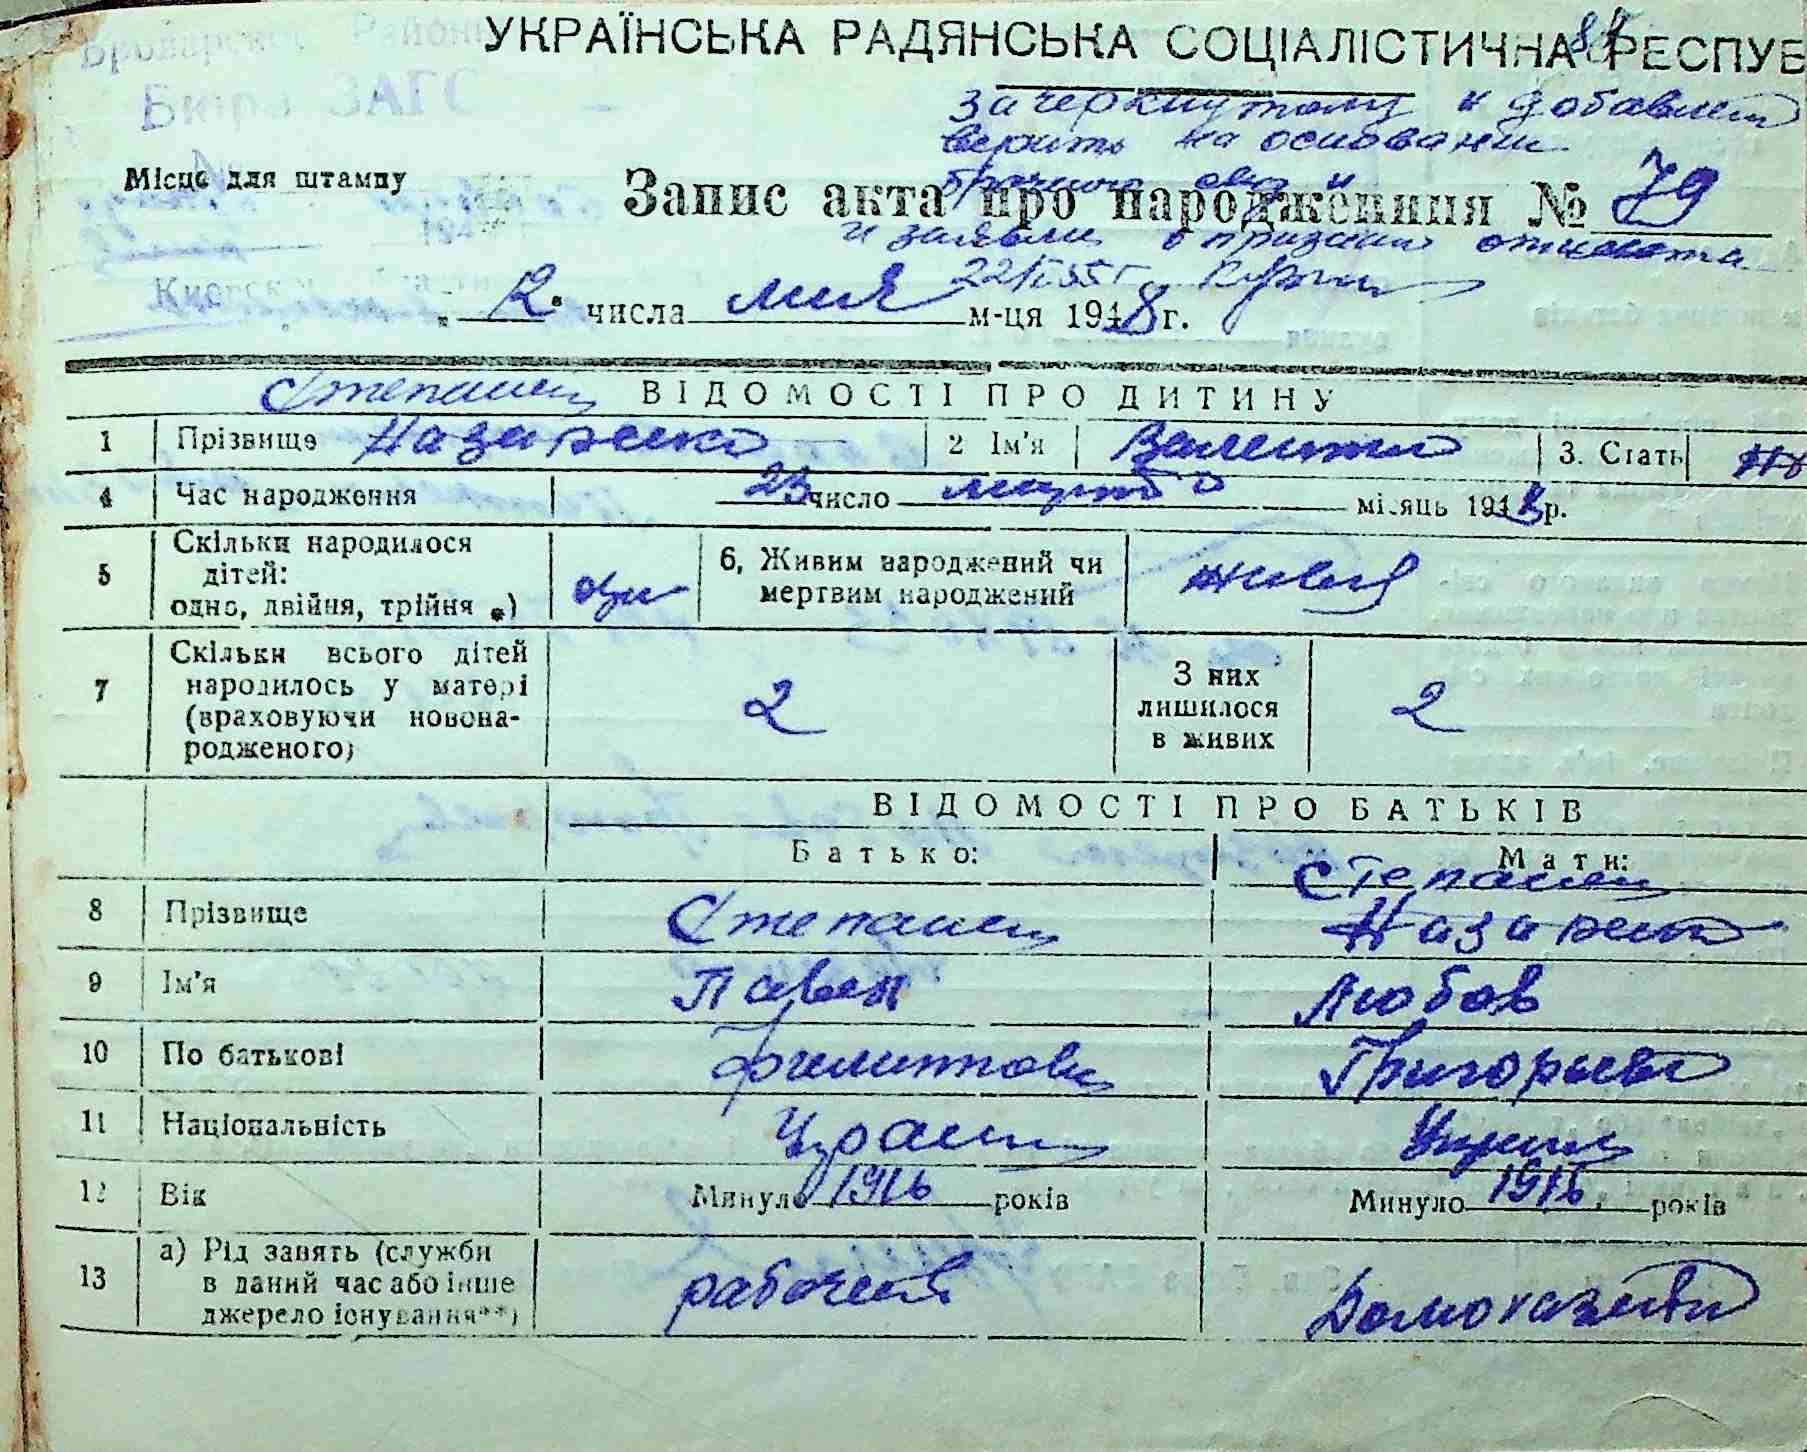 УКРАЇНСЬКА РАДЯНСЬКА СОЦІАЛІСТИЧНА РЕСПУБ
Бюро ЗАГС
зачеркнутому и добавлен
верить на основании
Місце для штампу
Запис акта про народження № 79
и заявл о признан отцовства
22/ 55 г.
„ 12 “ числа мая м-ця 1948 г.
Степанец
ВІДОМОСТІ ПРО ДИТИНУ
1 Прізвище Назаренко 2 Ім'я 3. Стать
4 Час народження 23 число марта місяць 1948 р.
5 Скільки народилося дітей: одно, двійня, трійня *) 6, Живим народжений чи мертвим народжений живой
7 Скільки всього дітей народилось у матері (враховуючи новонародженого) 2 З них лишилося в живих 2
ВІДОМОСТІ ПРО БАТЬКІВ
Батько: Мати:
Степанец
8 Прізвище Степанец Назаренко
9 Ім'я Павел Любов
10 По батькові Филиппови Григорьев
11 Національність Украин Украин
12 Вік Минуло 1916 років Минуло 1916 років
13 а) Рід занять (служби в даний час або інше джерело існування**) рабочий Домохазяй